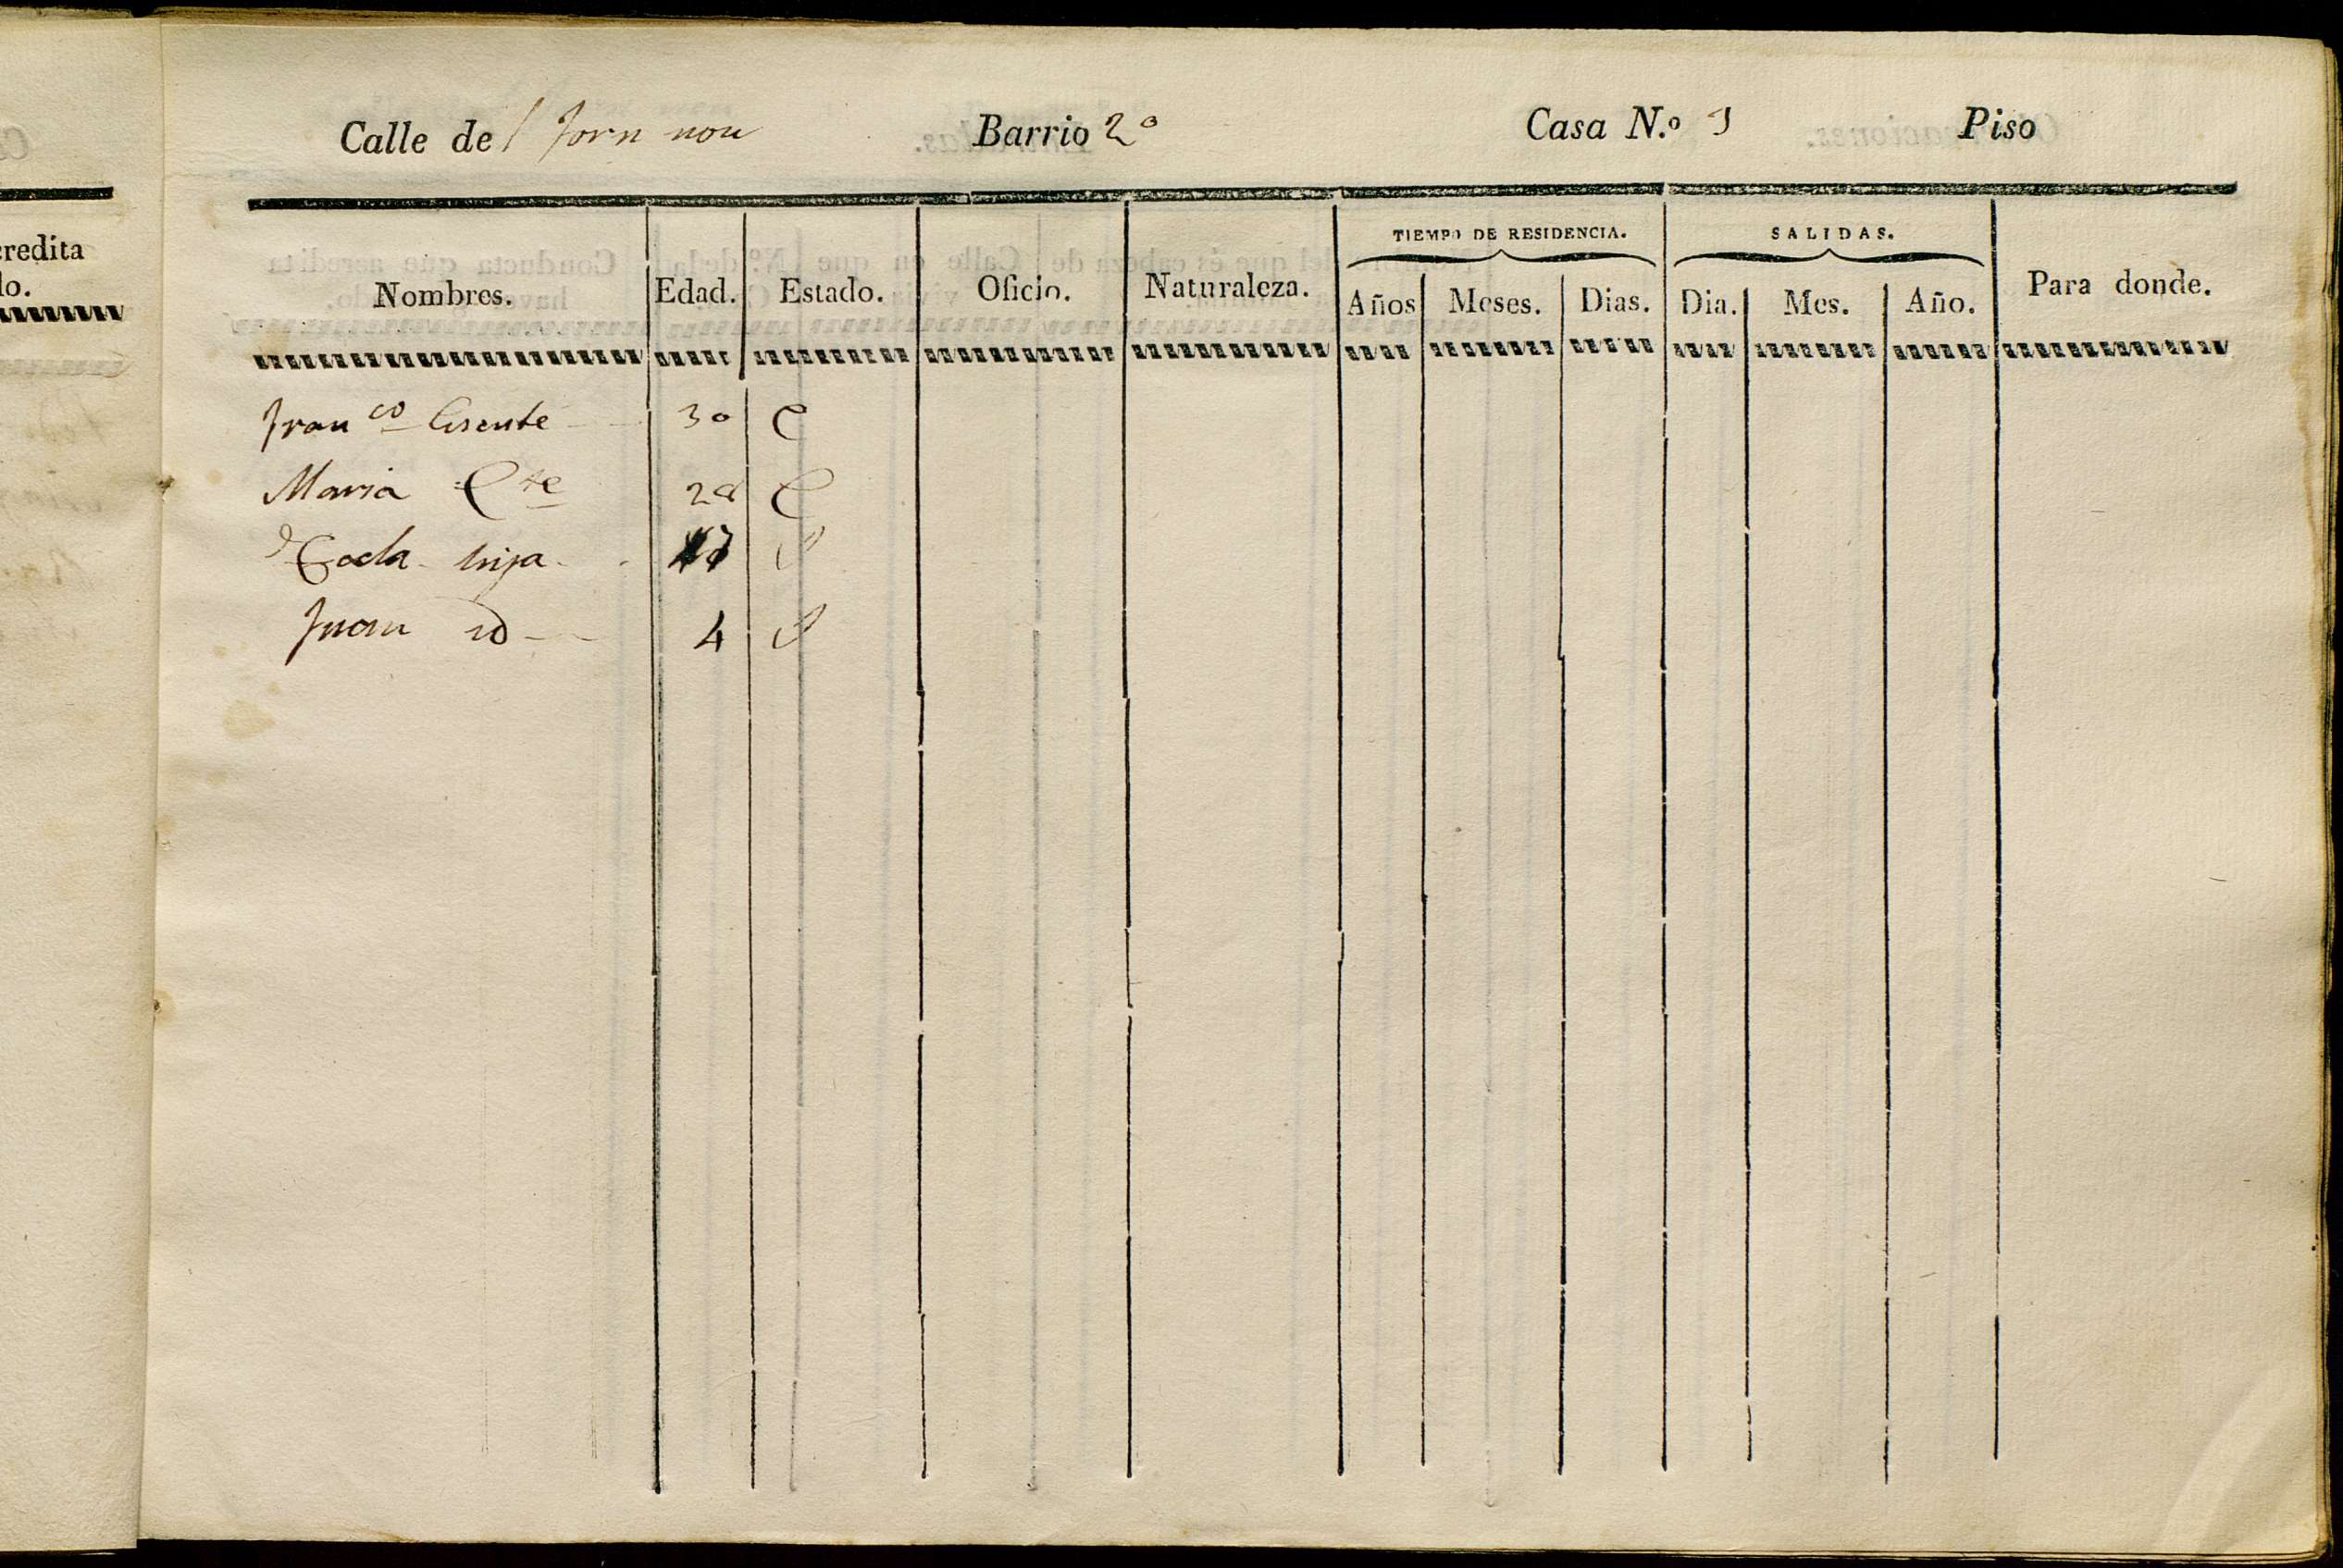 Calle del forn nou Barrio 2º Casa N.º 1 Piso
credita
do.
TIEMPO DE RESIDENCIA. SALIDAS.
Nombres. Edad. Estado. Oficio. Naturaleza. Años Meses. Dias. Dia. Mes. Año. Para donde.
Fran co 30 C
Maria C te 28 C
Tecla hija 7 S
Juan id 4 S